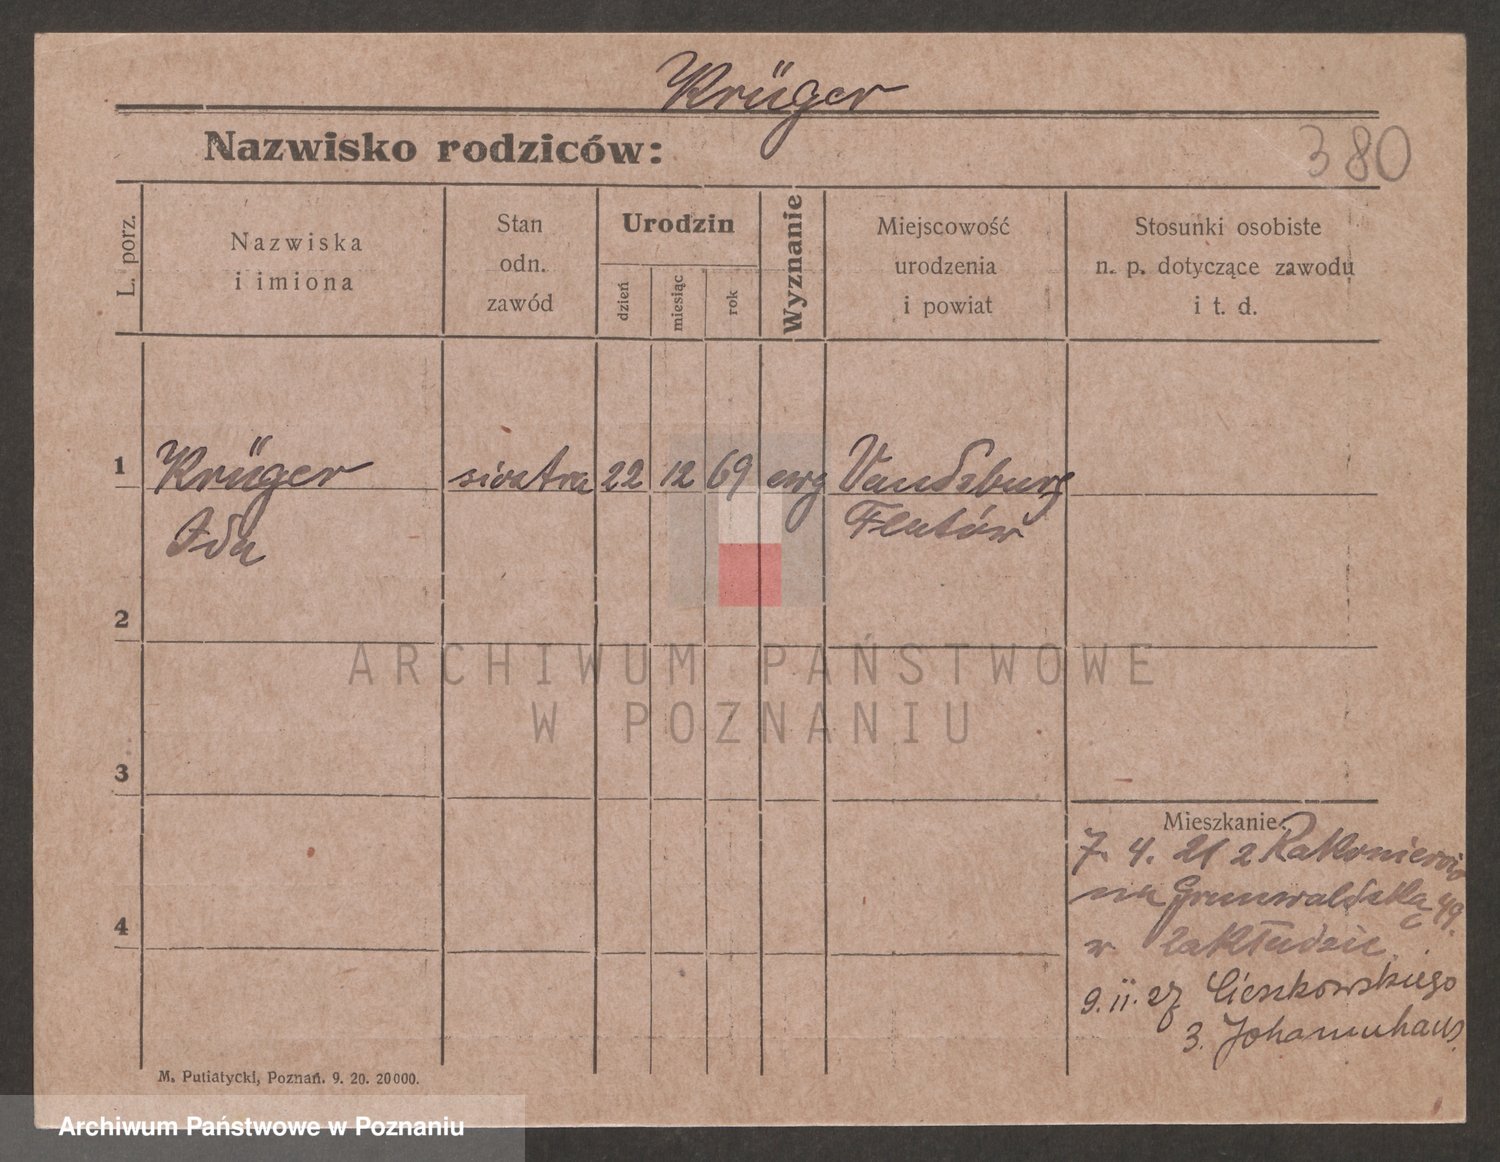 Krüger
Nazwisko rodziców:
380
L. porz.
Nazwiska
i imiona
Stan
odn.
zawód
Urodzin
dzień
miesiąc
rok
Wyznanie
Miejscowość
urodzenia
i powiat
Stosunki osobiste
n. p. dotyczące zawodu
i t. d.
1
Krüger siostra 22 12 69 ewg Vandsburg
Ida Flatów
2
ARCHIWUM PAŃSTWOWE
W POZNANIU
3
Mieszkanie:
7. 4. 21 z Rakoniewic
na Grunwaldzką 49.
4
w zakładzie
9. II. 27 Cieszkowskiego
3. Johannhaus
M. Putiatycki, Poznań. 9. 20. 20000.
Archiwum Państwowe w Poznaniu